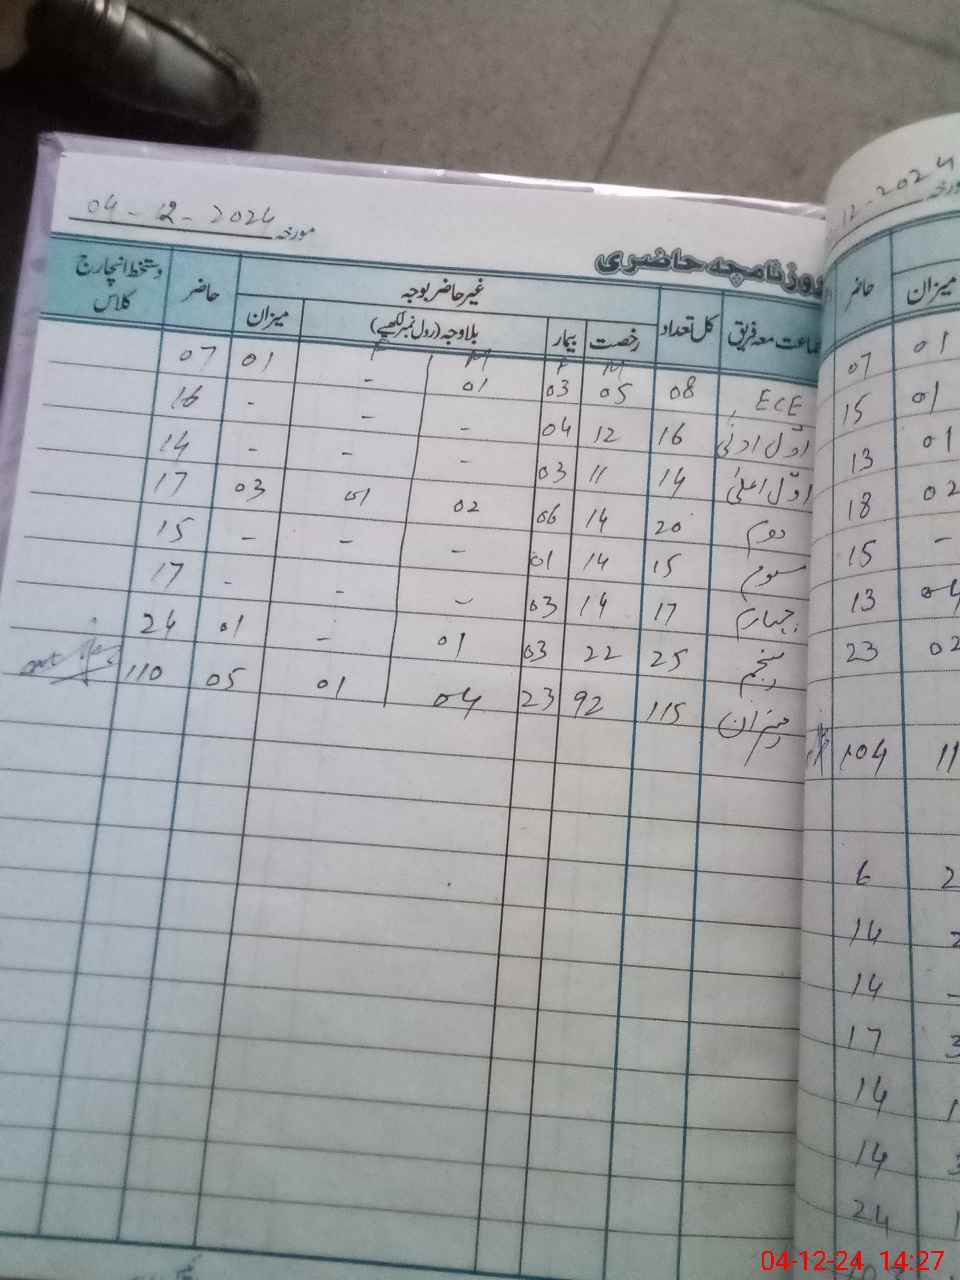 مورخہ 04-12-2024
روزنامچہ حاضری
جماعت معہ فریق کل تعداد غیر حاضر بوجہ حاضر دستخط انچارج کلاس
رخصت بیمار بلاوجہ (رول نمبر لکھیے) میزان
M F M F
ECE 08 05 03 01 - 01 07
اوّل ادنیٰ 16 12 04 - - - 16
اوّل اعلیٰ 14 11 03 - - - 14
دوم 20 14 06 02 01 03 17
سوم 15 14 01 - - - 15
چہارم 17 14 03 - - - 17
پنجم 25 22 03 01 - 01 24
میزان 115 92 23 04 01 05 110
12-2024
میزان حاضر
01 07
01 15
01 13
02 18
- 15
04 13
02 23
11 104
2 6
2 14
- 14
3 17
1 14
3 14
1 24
04-12-24 14:27